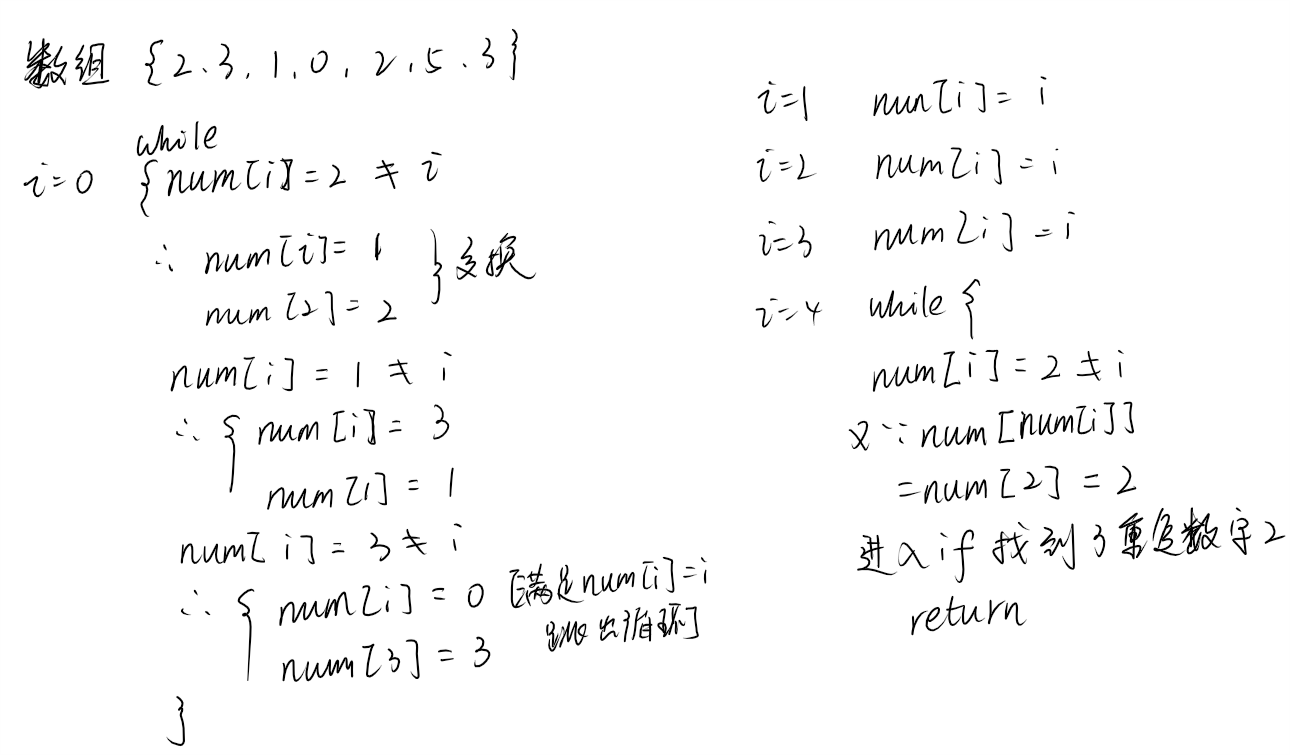 数组 {2、3、1、0、2、5、3}
while
i=0 {num[i]=2 ≠ i
∴ num[i]= 1
num[2]= 2 } 交换
num[i] = 1 ≠ i
∴ { num[i]= 3
num[1]= 1
num[i]= 3 ≠ i
∴ { num[i] = 0 [满足num[i]=i
跳出循环]
num[3] = 3
}
i=1 nun[i]= i
i=2 num[i]= i
i=3 num[i]= i
i=4 while {
num[i]= 2 ≠ i
又∵ num[num[i]]
=num[2] = 2
进入if 找到了重复数字2
return